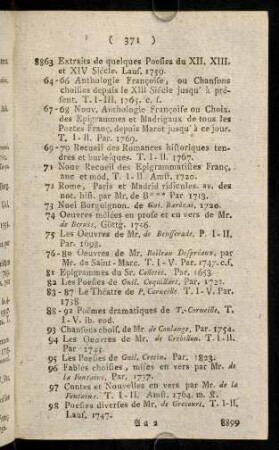 ( 371 )
8863 Extraits de quelques Poesies du XII. XIII.
et XIV Siécle. Lauf. 1759.
64-66 Anthologie Françoise, ou Chansons
choisies depuis le XIII Siécle jusqu' à pré-
sent. T. I-III. 1765. c. f.
67-68 Nouv. Anthologie Françoise ou Choix
des Epigrammes et Madrigaux de tous les
Poetes Franç. depuis Marot jusqu' à ce jour.
T. I-II. Par. 1769.
69-70 Recueil des Romances historiques ten-
dres et burlesques. T. I-II. 1767.
71 Nouv Recueil des Epigrammatistes Franç.
anc et mod. T. I-II. Amst. 1720.
72 Rome, Paris et Madrid ridicules. av. des
not. hist. par Mr. de B*** Par 1713.
73 Noei Borguignon. de Gui. Barôzai, 1720.
74 Oeuvres mêlées en prose et en vers de Mr.
de Bernis, Göttg. 1746.
75 Les Oeuvres de Mr. de Bensserade. P. I-II.
Par. 1698.
76-80 Oeuvres de Mr. Boileau Despréaux, par
Mr. de Saint-Marc. T. I-V. Par. 1747. c.f.
81 Epigrammes du Sr. Colletet. Par. 1653.
82 Les Poesies de Guil. Coquillart, Par. 1723.
83-87 Le Théatre de P. Corneille. T. I-V. Par.
1738
88-92 Poëmes dramatiques de T. Corneille. T.
I-V. ib. eod.
93 Chansons chois. de Mr. de Coulange, Par. 1754.
94 Les Oeuvres de Mr. de Crebillon. T. I-II.
Par
95 Les Poesies de Guil. Cretin. Par. 1823.
96 Fables choisies, mises en vers par Mr. de
la Fontaine, Par. 1757.
97 Contes et Nouvelles en vers par Mr. de la
Fontaine. T. I-II. Amst. 1764. m. K.
98 Poesies diverses de Mr. de Grecourt, T. I-II.
Lauf. 1747.
A a 2 8899